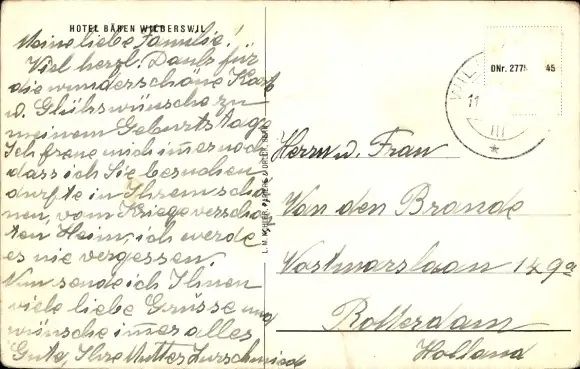 HOTEL BÄREN WILDERSWIL
Meine liebe Familie!
Viel herzl. Dank für
die wunderschöne Karte
u. Glükswünsche zu
meinem Geburtstag.
Ich freue mich immer noch
dass ich Sie besuchen
durfte in Ihrem schö
nen, vom Kriege verscho
ten Heim, ich werde
es nie vergessen.
Nun sende ich Ihnen
viele liebe Grüsse und
wünsche immer alles
Gute, Ihre Mutter Zurschmiede
DNr. 277 45
11
III
Herrn u. Frau
Van den Brande
149a
Rotterdam
Holland